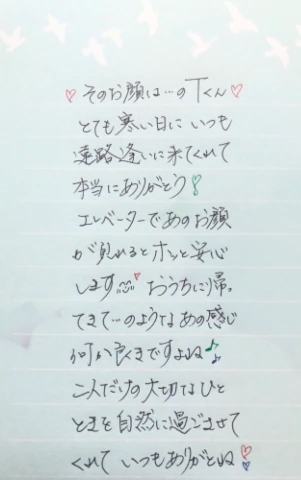 そのお顔は…のTくん
とても寒い日に いつも
遠路逢いに来てくれて
本当にありがとう!
エレベーターであのお顔
が見れるとホッと安心
します おうちに帰っ
てきて…のような あの感じ
何か良きですよね♪
二人だけの大切なひと
ときを自然に過ごさせて
くれて いつもありがとね!